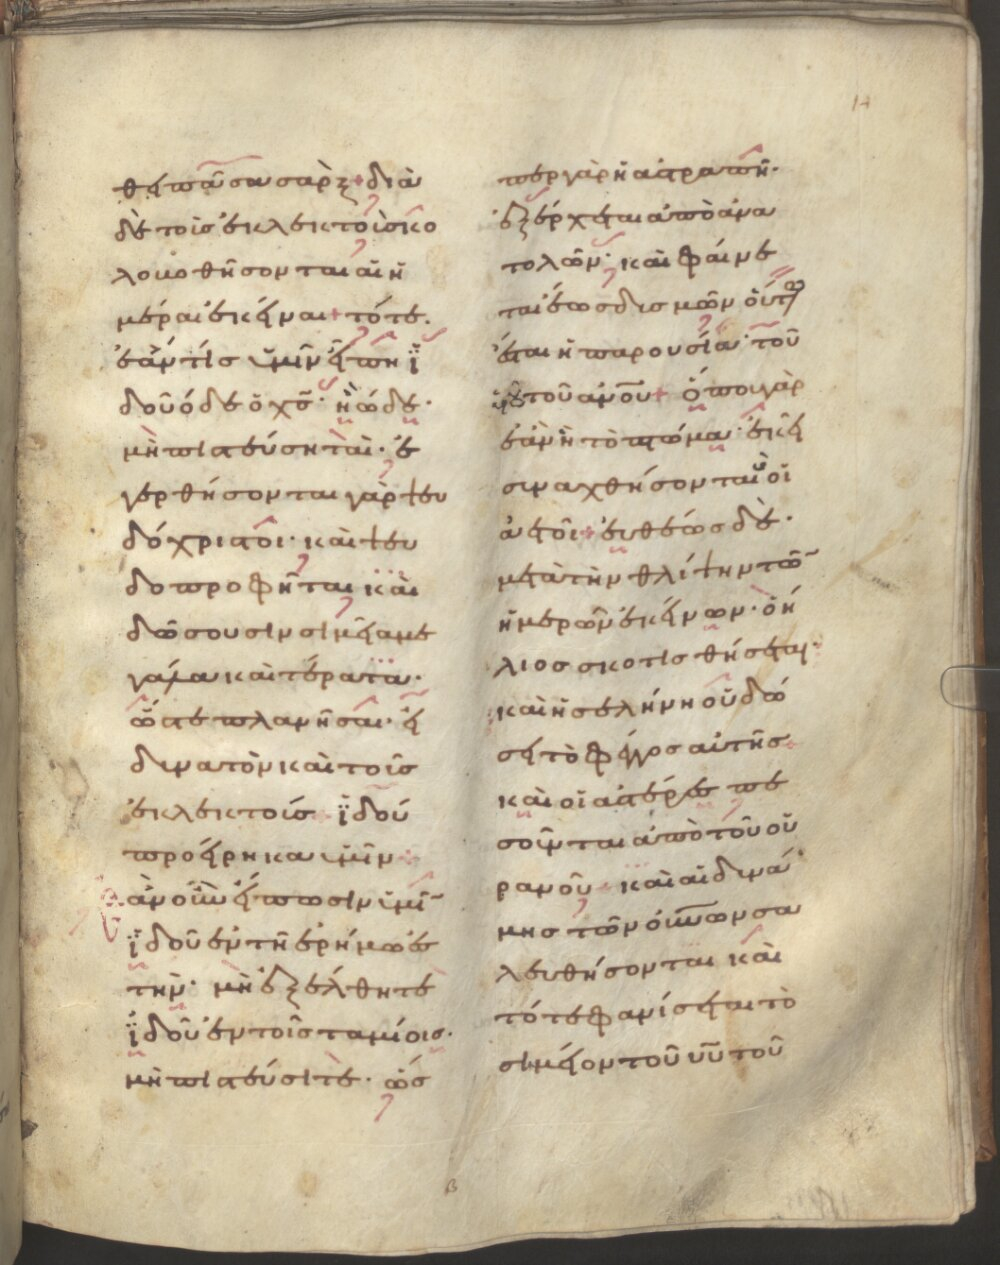 14
θει πᾶσα σὰρξ + διὰ
δὲ τοὺς ἐκλεκτοὺς κο
λοβοθήσονται αἱ ἡ
μέραι ἐκεῖναι + τότε.
ἐάν τις ὑμῖν εἴπη ϊ
δοὺ ὁδε ὁ χς̅· ἢ ὧδε·
μὴ πιστεύσηται· ἐ
γερθήσονται γὰρ ψευ
δόχριστοι· καὶ ψευ
δοπροφῆται καὶ
δώσουσιν σημεῖα με
γάλα καὶ τέρατα·
ὥστε πλανῆσαι· εἰ
δυνατὸν καὶ τοὺς
ἐκλεκτούς + ϊδού
προείρηκα ὑμῖν +
ἐὰν οὖν εἴπωσιν ὑμῖ̅
ϊδοῦ ἐν τῆ ἐρήμω ἐσ
τὴν· μὴ ἐξέλθητε
ϊδοῦ ἐν τοῖς ταμίοις·
μὴ πιστεύσιτε· ὥσ
περ γὰρ ἡ ἀστραπὴ·
ἐξέρχεται ἀπὸ ἀνα
τολῶν· καὶ φαίνε
ται ἕως δισμῶν οὕτω
ἔσται ἡ παρουσία· τοῦ
υυ̅ τοῦ ἀνου̅ + ὅποι γὰρ
ἐὰν ἦ τὸ πτῶμα· ἐκεῖ
συναχθήσονται οἱ
ἀετοὶ + εὐθέως δὲ·
μετὰ τὴν θλίψην τῶ̅
ἡμερῶν ἐκείνων· ὁ ἥ
λιος σκοτισθήσεται·
καὶ ἡ σελήνη οὐ δώ
σει τὸ φέγγος αὐτῆς
καὶ οἱ ἀστέρες πε
σοῦνται ἀπὸ τοῦ οὐ
ρανοῦ + καὶ αἱ δυνά
μης τῶν οὐνων σα
λευθήσονται καὶ
τότε φανίσεται τὸ
σημεῖον τοῦ υυ̅ τοῦ
β